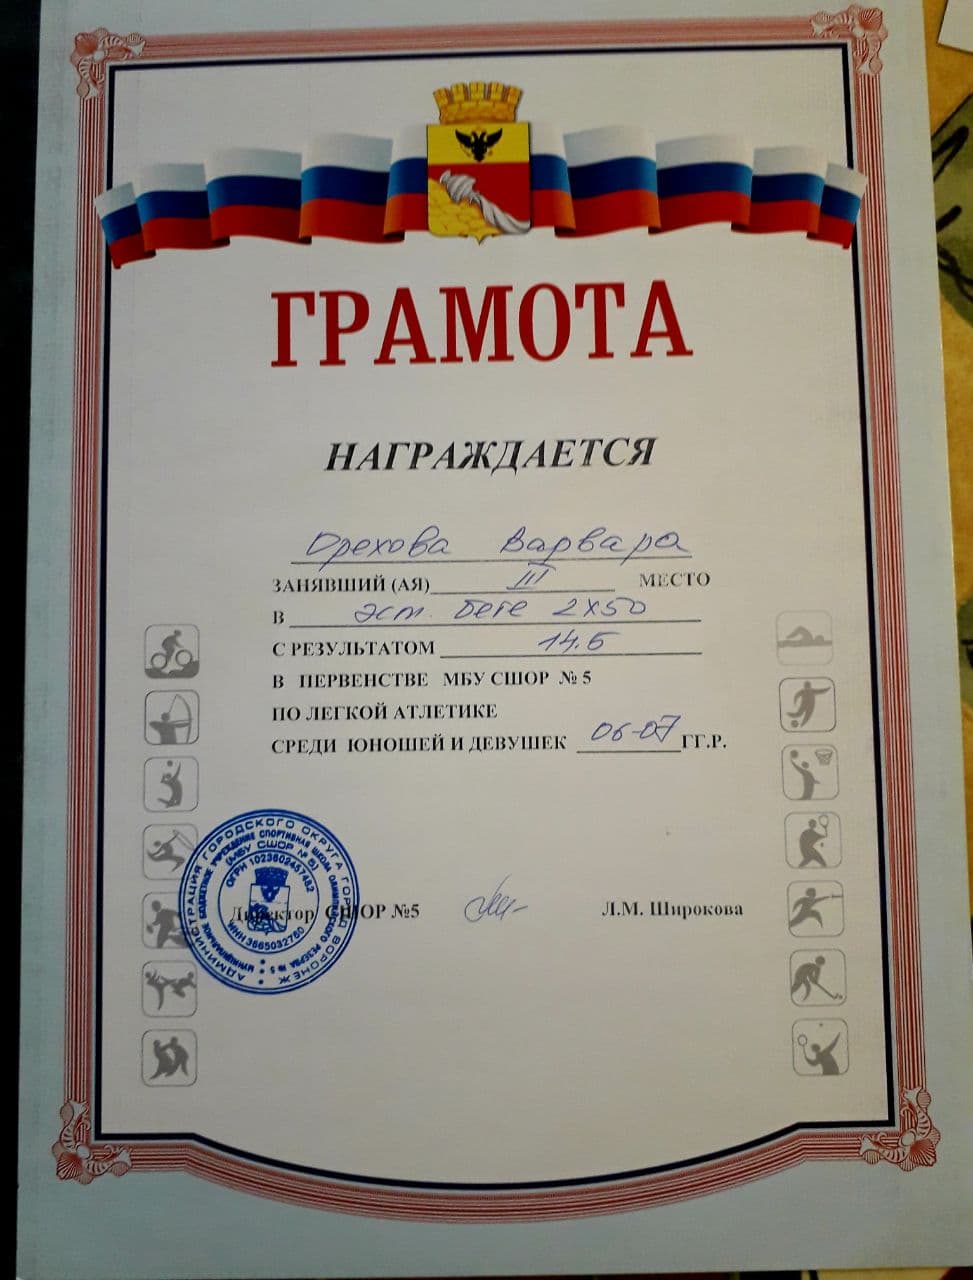 ГРАМОТА
НАГРАЖДАЕТСЯ
Орехова Варвара
ЗАНЯВШИЙ (АЯ) III МЕСТО
В эст. беге 2х50
С РЕЗУЛЬТАТОМ 14.6
В ПЕРВЕНСТВЕ МБУ СШОР № 5
ПО ЛЕГКОЙ АТЛЕТИКЕ
СРЕДИ ЮНОШЕЙ И ДЕВУШЕК 06-07 ГГ.Р.
АДМИНИСТРАЦИЯ ГОРОДСКОГО ОКРУГА ГОРОД ВОРОНЕЖ
МУНИЦИПАЛЬНОЕ БЮДЖЕТНОЕ УЧРЕЖДЕНИЕ СПОРТИВНАЯ ШКОЛА ОЛИМПИЙСКОГО РЕЗЕРВА № 5
(МБУ СШОР № 5)
ОГРН 1023602457482
ИНН 3665032760
Директор СШОР №5 Л.М. Широкова